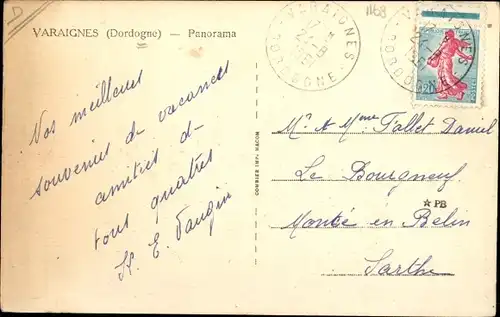 D
VARAIGNES (Dordogne) — Panorama
1168
VARAIGNES
DORDOGNE
Nos meilleurs
souvenirs de vacances
amitiés de
tous quatres
COMBIER IMP. MACON
Mr & Mme Fallet Daniel
Le Bourgneuf
★PB
Moncé en Belin
Sarthe